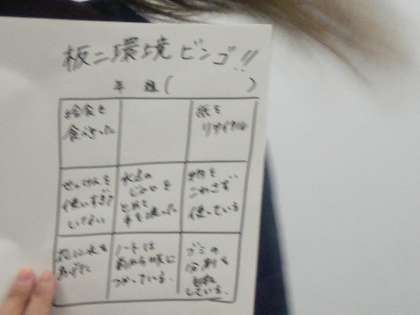 板二環境ビンゴ!!
年 組( )
給食を
食べきった
紙を
リサイクル
せっけんを
使いすぎて
いない
水道の
じゃ口を
とめて
手を洗った
物を
こわさず
使っている
花に水を
あげた
ノートは
前から順に
つかっている。
ゴミの
分別を
している。